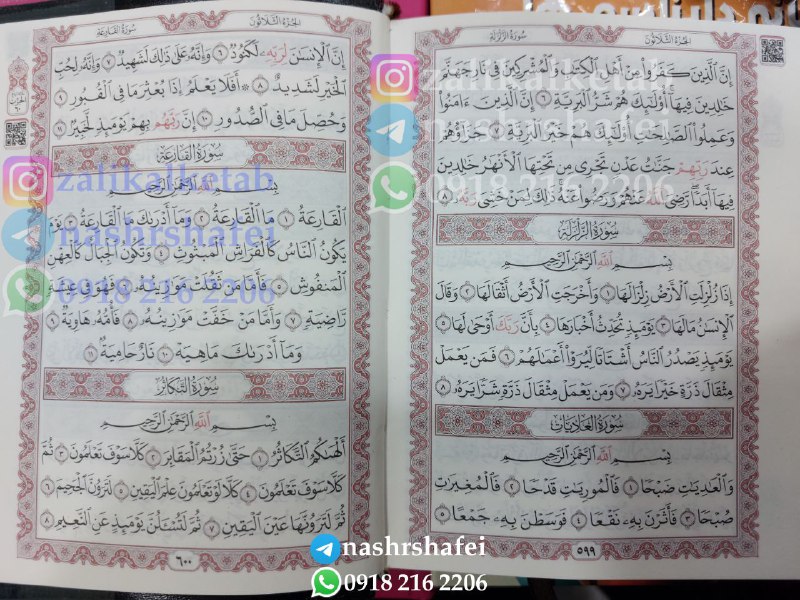 الجزء الثلاثون
سورة الزلزلة
إِنَّ ٱلَّذِينَ كَفَرُوا۟ مِنْ أَهْلِ ٱلْكِتَٰبِ وَٱلْمُشْرِكِينَ فِى نَارِ جَهَنَّمَ
خَٰلِدِينَ فِيهَآ أُو۟لَٰٓئِكَ هُمْ شَرُّ ٱلْبَرِيَّةِ ٦ إِنَّ ٱلَّذِينَ ءَامَنُوا۟
وَعَمِلُوا۟ ٱلصَّٰلِحَٰتِ أُو۟لَٰٓئِكَ هُمْ خَيْرُ ٱلْبَرِيَّةِ ٧ جَزَآؤُهُمْ
عِندَ رَبِّهِمْ جَنَّٰتُ عَدْنٍ تَجْرِى مِن تَحْتِهَا ٱلْأَنْهَٰرُ خَٰلِدِينَ
فِيهَآ أَبَدًا رَّضِىَ ٱللَّهُ عَنْهُمْ وَرَضُوا۟ عَنْهُ ذَٰلِكَ لِمَنْ خَشِىَ رَبَّهُۥ ٨
سورة الزلزلة
بِسْمِ ٱللَّهِ ٱلرَّحْمَٰنِ ٱلرَّحِيمِ
إِذَا زُلْزِلَتِ ٱلْأَرْضُ زِلْزَالَهَا ١ وَأَخْرَجَتِ ٱلْأَرْضُ أَثْقَالَهَا ٢ وَقَالَ
ٱلْإِنسَٰنُ مَا لَهَا ٣ يَوْمَئِذٍ تُحَدِّثُ أَخْبَارَهَا ٤ بِأَنَّ رَبَّكَ أَوْحَىٰ لَهَا ٥
يَوْمَئِذٍ يَصْدُرُ ٱلنَّاسُ أَشْتَاتًا لِّيُرَوْا۟ أَعْمَٰلَهُمْ ٦ فَمَن يَعْمَلْ
مِثْقَالَ ذَرَّةٍ خَيْرًا يَرَهُۥ ٧ وَمَن يَعْمَلْ مِثْقَالَ ذَرَّةٍ شَرًّا يَرَهُۥ ٨
سورة العاديات
بِسْمِ ٱللَّهِ ٱلرَّحْمَٰنِ ٱلرَّحِيمِ
وَٱلْعَٰدِيَٰتِ ضَبْحًا ١ فَٱلْمُورِيَٰتِ قَدْحًا ٢ فَٱلْمُغِيرَٰتِ
صُبْحًا ٣ فَأَثَرْنَ بِهِۦ نَقْعًا ٤ فَوَسَطْنَ بِهِۦ جَمْعًا ٥
٥٩٩
الجزء الثلاثون
سورة القارعة
إِنَّ ٱلْإِنسَٰنَ لِرَبِّهِۦ لَكَنُودٌ ٦ وَإِنَّهُۥ عَلَىٰ ذَٰلِكَ لَشَهِيدٌ ٧ وَإِنَّهُۥ لِحُبِّ
ٱلْخَيْرِ لَشَدِيدٌ ٨ ۞ أَفَلَا يَعْلَمُ إِذَا بُعْثِرَ مَا فِى ٱلْقُبُورِ ٩
وَحُصِّلَ مَا فِى ٱلصُّدُورِ ١٠ إِنَّ رَبَّهُم بِهِمْ يَوْمَئِذٍ لَّخَبِيرٌۢ ١١
سورة القارعة
بِسْمِ ٱللَّهِ ٱلرَّحْمَٰنِ ٱلرَّحِيمِ
ٱلْقَارِعَةُ ١ مَا ٱلْقَارِعَةُ ٢ وَمَآ أَدْرَىٰكَ مَا ٱلْقَارِعَةُ ٣ يَوْمَ
يَكُونُ ٱلنَّاسُ كَٱلْفَرَاشِ ٱلْمَبْثُوثِ ٤ وَتَكُونُ ٱلْجِبَالُ كَٱلْعِهْنِ
ٱلْمَنفُوشِ ٥ فَأَمَّا مَن ثَقُلَتْ مَوَٰزِينُهُۥ ٦ فَهُوَ فِى عِيشَةٍ
رَّاضِيَةٍ ٧ وَأَمَّا مَنْ خَفَّتْ مَوَٰزِينُهُۥ ٨ فَأُمُّهُۥ هَاوِيَةٌ ٩
وَمَآ أَدْرَىٰكَ مَا هِيَهْ ١٠ نَارٌ حَامِيَةٌۢ ١١
سورة التكاثر
بِسْمِ ٱللَّهِ ٱلرَّحْمَٰنِ ٱلرَّحِيمِ
أَلْهَىٰكُمُ ٱلتَّكَاثُرُ ١ حَتَّىٰ زُرْتُمُ ٱلْمَقَابِرَ ٢ كَلَّا سَوْفَ تَعْلَمُونَ ٣ ثُمَّ
كَلَّا سَوْفَ تَعْلَمُونَ ٤ كَلَّا لَوْ تَعْلَمُونَ عِلْمَ ٱلْيَقِينِ ٥ لَتَرَوُنَّ ٱلْجَحِيمَ ٦
ثُمَّ لَتَرَوُنَّهَا عَيْنَ ٱلْيَقِينِ ٧ ثُمَّ لَتُسْـَٔلُنَّ يَوْمَئِذٍ عَنِ ٱلنَّعِيمِ ٨
٦٠٠
zalikalketab
nashrshafei
0918 216 2206
zalikalketab
nashrshafei
0918 216 2206
nashrshafei
0918 216 2206